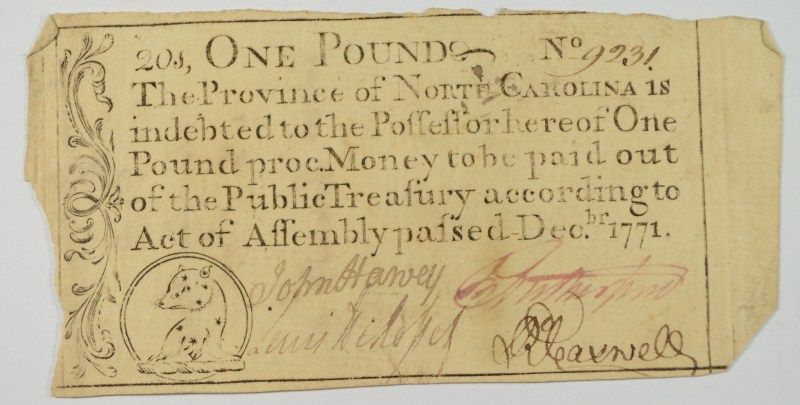 20s, ONE POUND No 9231.
The Province of NORTH CAROLINA is
indebted to the Poſſeſſor hereof One
Pound proc. Money to be paid out
of the Public Treaſury according to
Act of Aſſembly paſsed Dec.br 1771.
John Harvey
Rutherfurd
Lewis
Maxwell